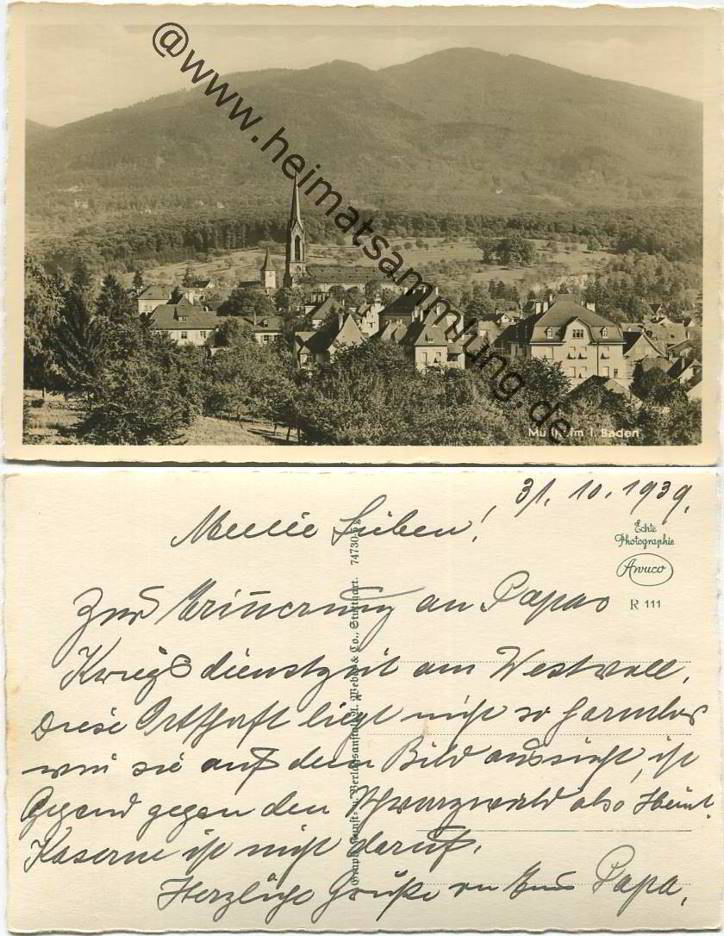 @www.heimatsammlung.de
Müllheim i. Baden
31. 10. 1939.
Meine Lieben!
Echte
Photographie
Awuco
R 111
74730
Zur Erinnerung an Papas
Kriegsdienstzeit am Westwall.
Diese Ortschaft liegt nicht so harmlos
wie sie auf dem Bild aussieht, ist
Gegend gegen den Schwarzwald also
Kaserne ist nicht darauf.
Herzliche Grüße von Papa,
Weber & Co., Stuttgart.